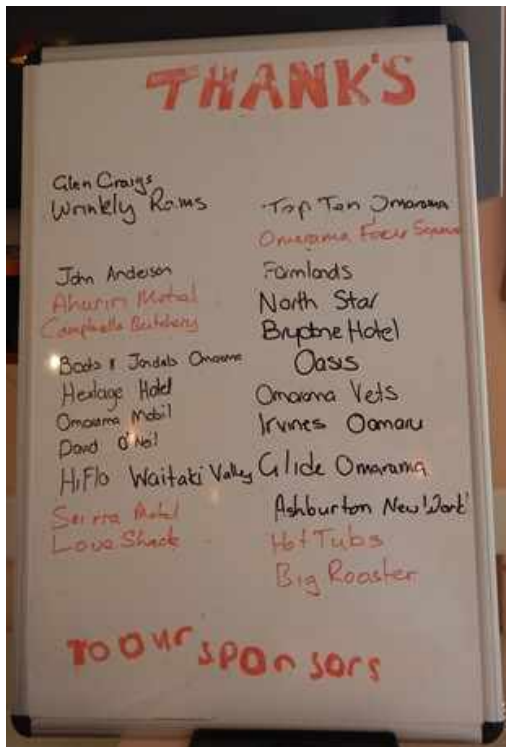 THANK'S
Glen Craigs
Wrinkly Rams
John Anderson
Ahuriri Motel
Campbells Butchery
Boots & Jandals Omarama
Heritage Hotel
Omarama Mobil
David O'Neil
HiFlo Waitaki Valley
Sierra Motel
Love Shack
Top Ten Omarama
Omarama Four Square
Farmlands
North Star
Brydone Hotel
Oasis
Omarama Vets
Irvines Oamaru
Glide Omarama
Ashburton New World
Hot Tubs
Big Rooster
TO our sponsors